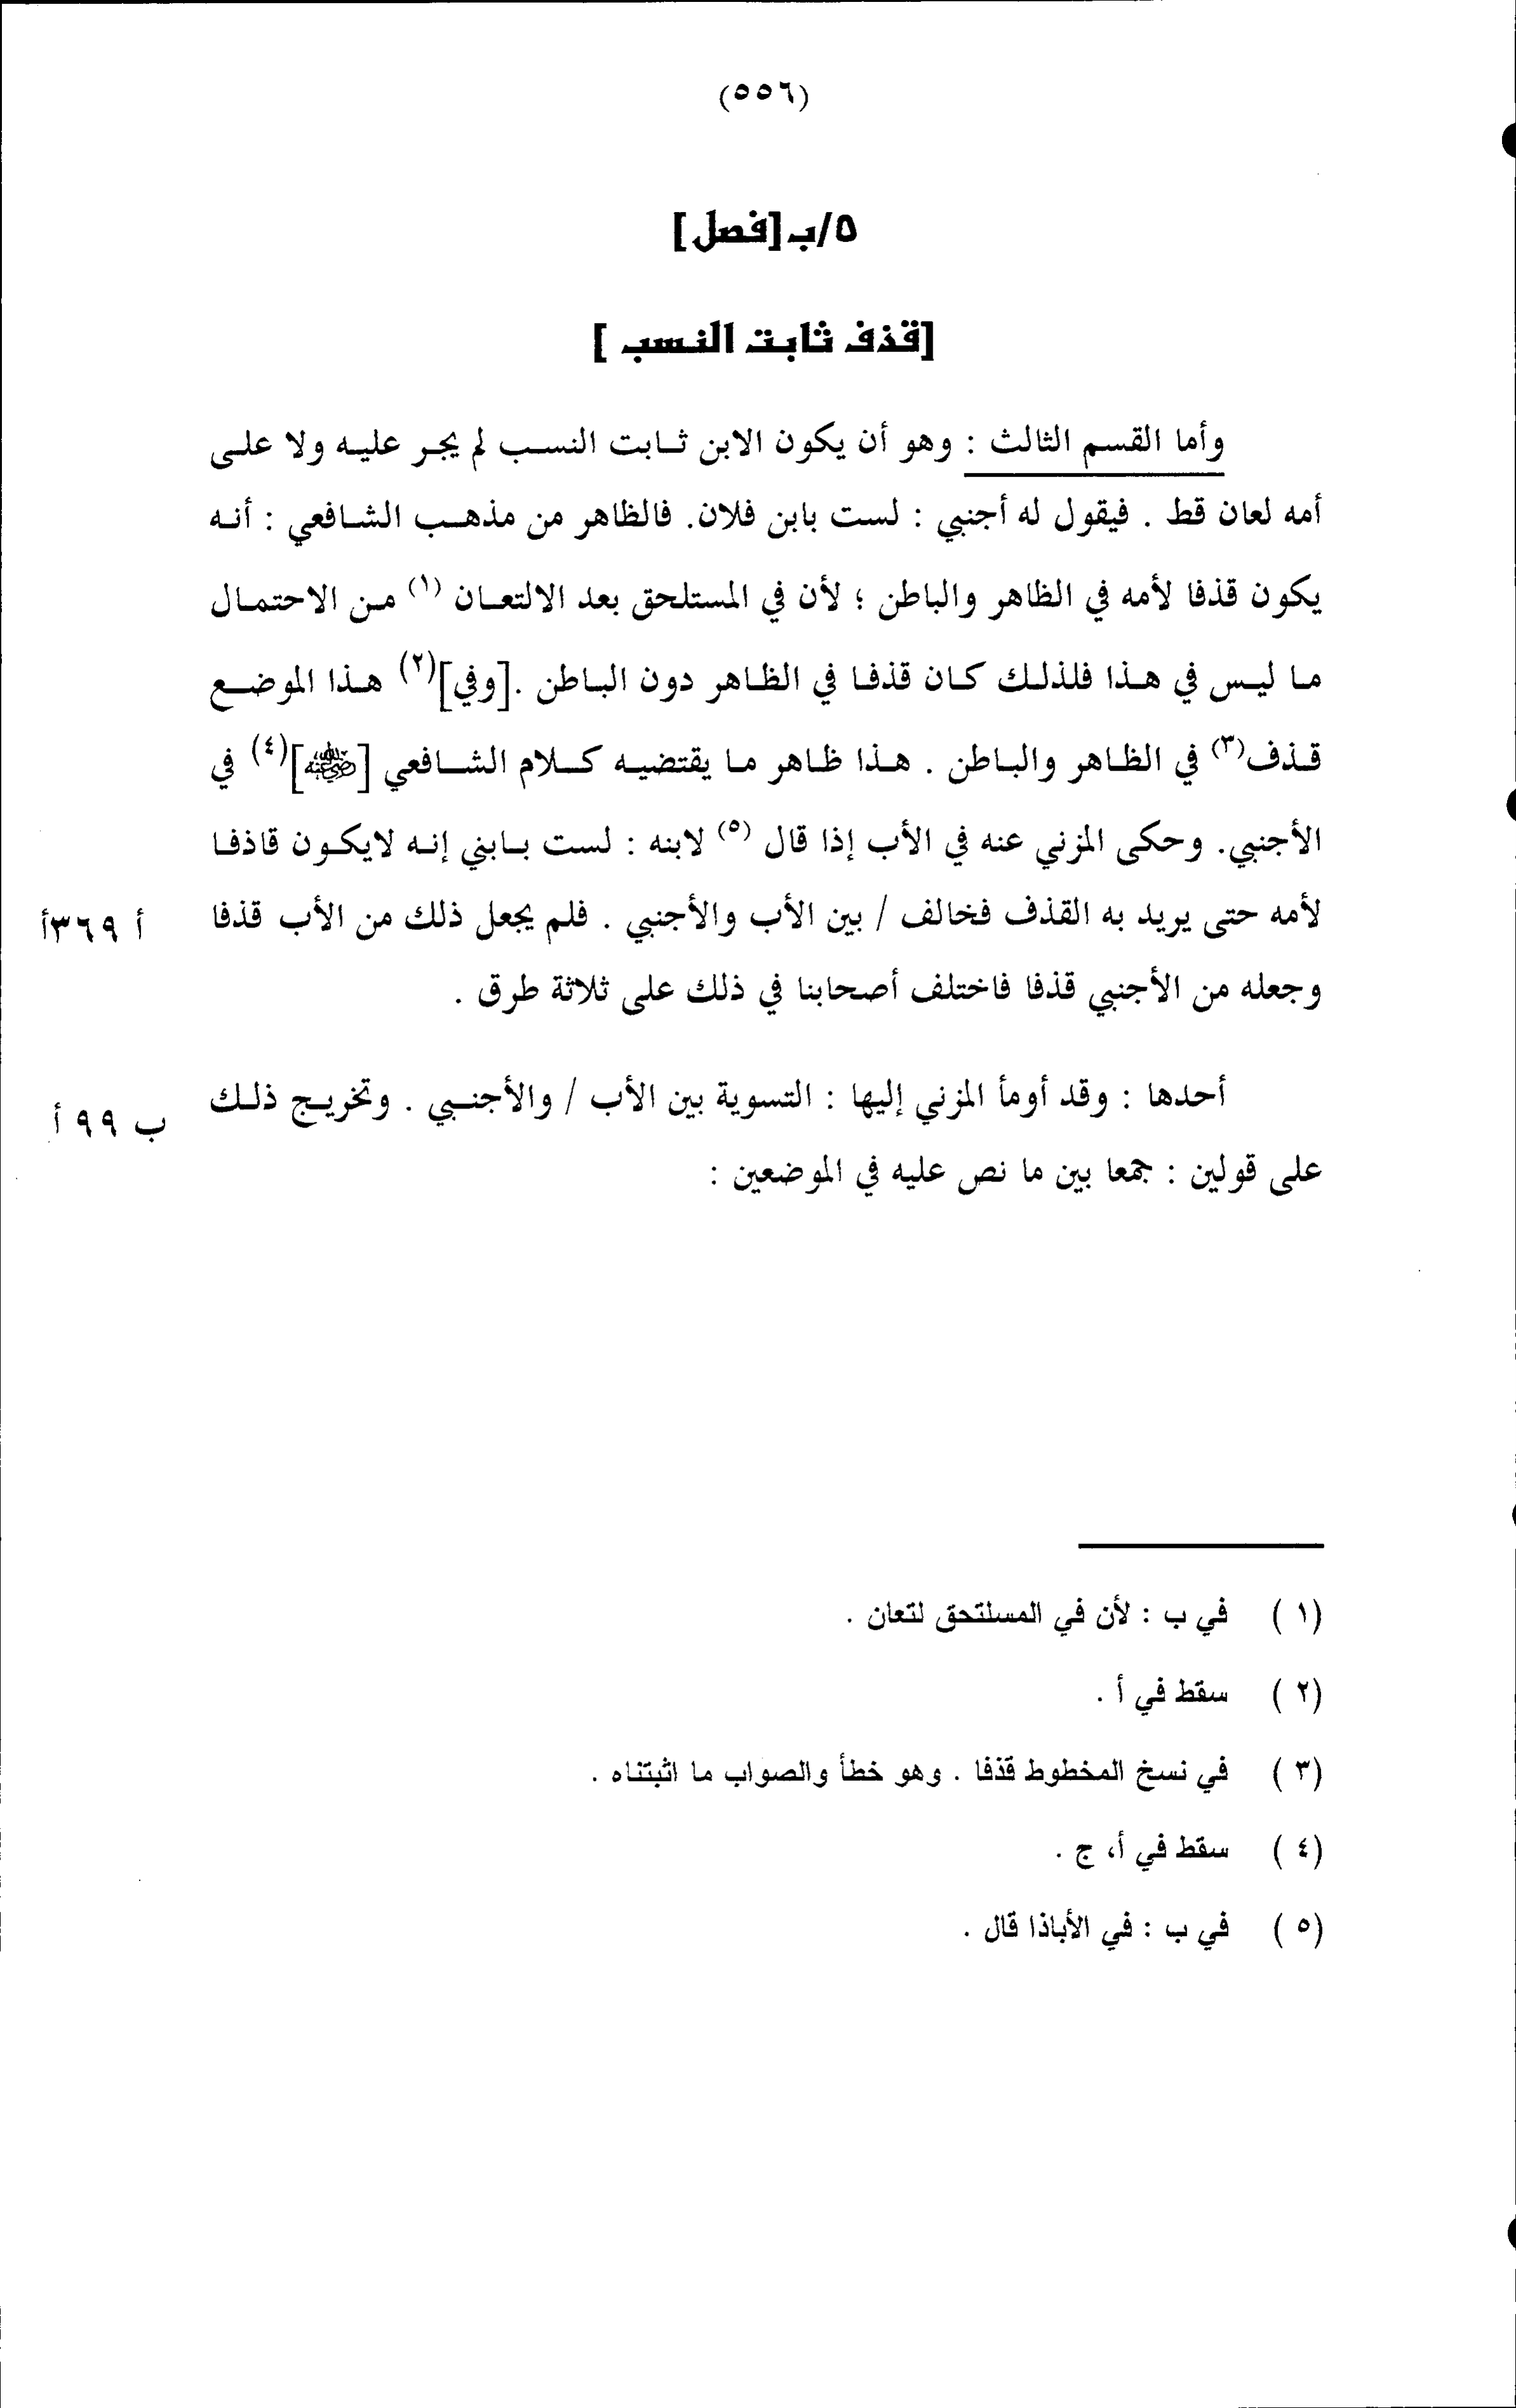 (٥٥٦)
٥/ب [فصل]
[قذف ثابت النسب ]
وأما القسم الثالث : وهو أن يكون الابن ثابت النسب لم يجر عليه ولا على
أمه لعان قط . فيقول له أجنبي : لست بابن فلان. فالظاهر من مذهب الشافعي : أنه
يكون قذفا لأمه في الظاهر والباطن ؛ لأن في المستلحق بعد الالتعان (١) من الاحتمال
ما ليس في هذا فلذلك كان قذفا في الظاهر دون الباطن .[وفي](٢) هذا الموضع
قذف(٣) في الظاهر والباطن . هذا ظاهر ما يقتضيه كلام الشافعي [رضي الله عنه](٤) في
الأجنبي. وحكى المزني عنه في الأب إذا قال (٥) لابنه : لست بابني إنه لايكون قاذفا
لأمه حتى يريد به القذف فخالف / بين الأب والأجنبي . فلم يجعل ذلك من الأب قذفا
أ ٣٦٩أ
وجعله من الأجنبي قذفا فاختلف أصحابنا في ذلك على ثلاثة طرق .
أحدها : وقد أومأ المزني إليها : التسوية بين الأب / والأجنبي . وتخريج ذلك
ب ٩٩ أ
على قولين : جمعا بين ما نص عليه في الموضعين :
(١) في ب : لأن في المسلتحق لتعان .
(٢) سقط في أ .
(٣) في نسخ المخطوط قذفا . وهو خطأ والصواب ما اثبتناه .
(٤) سقط في أ، ج .
(٥) في ب : في الأباذا قال .